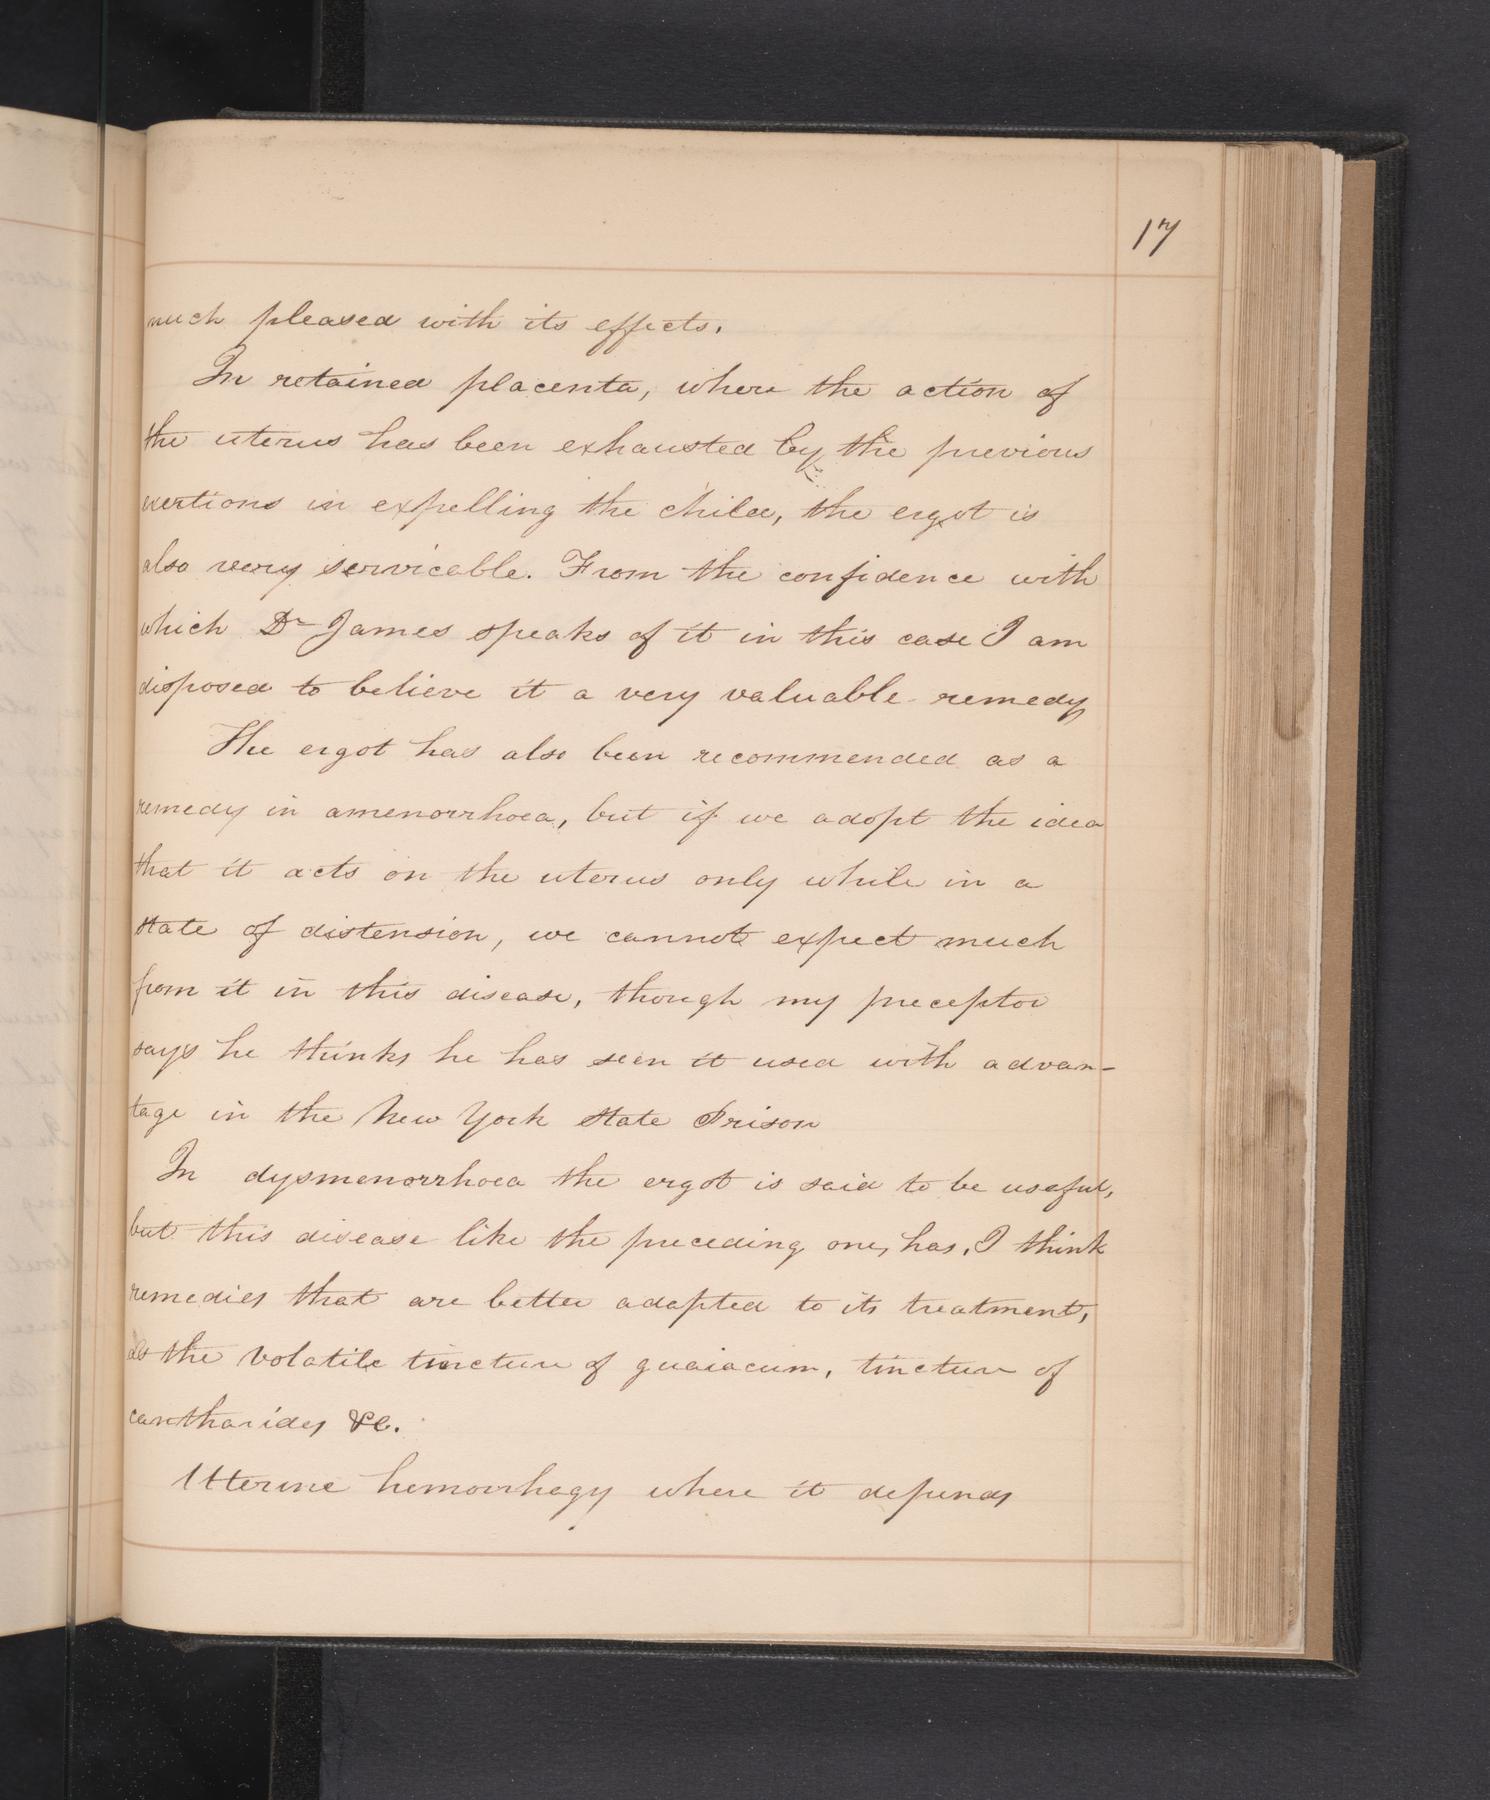 17
much pleased with its effects.
In retained placenta, where the action of
the uterus has been exhausted by the previous
exertions in expelling the child, the ergot is
also very servicable. From the confidence with
which Dr James speaks of it in this case I am
disposed to believe it a very valuable remedy
The ergot has also been recommended as a
remedy in amenorrhoea, but if we adopt the idea
that it acts on the uterus only while in a
state of distension, we cannot expect much
from it in this disease, though my preceptor
says he thinks he has seen it used with advan-
tage in the New York State Prison
In dysmenorrhoea the ergot is said to be useful,
but this disease like the preceding one, has, I think
remedies that are better adapted to its treatment,
as the volatile tincture of guaiacum, tincture of
cantharides &c.
Utterine hemorrhagy where it depends